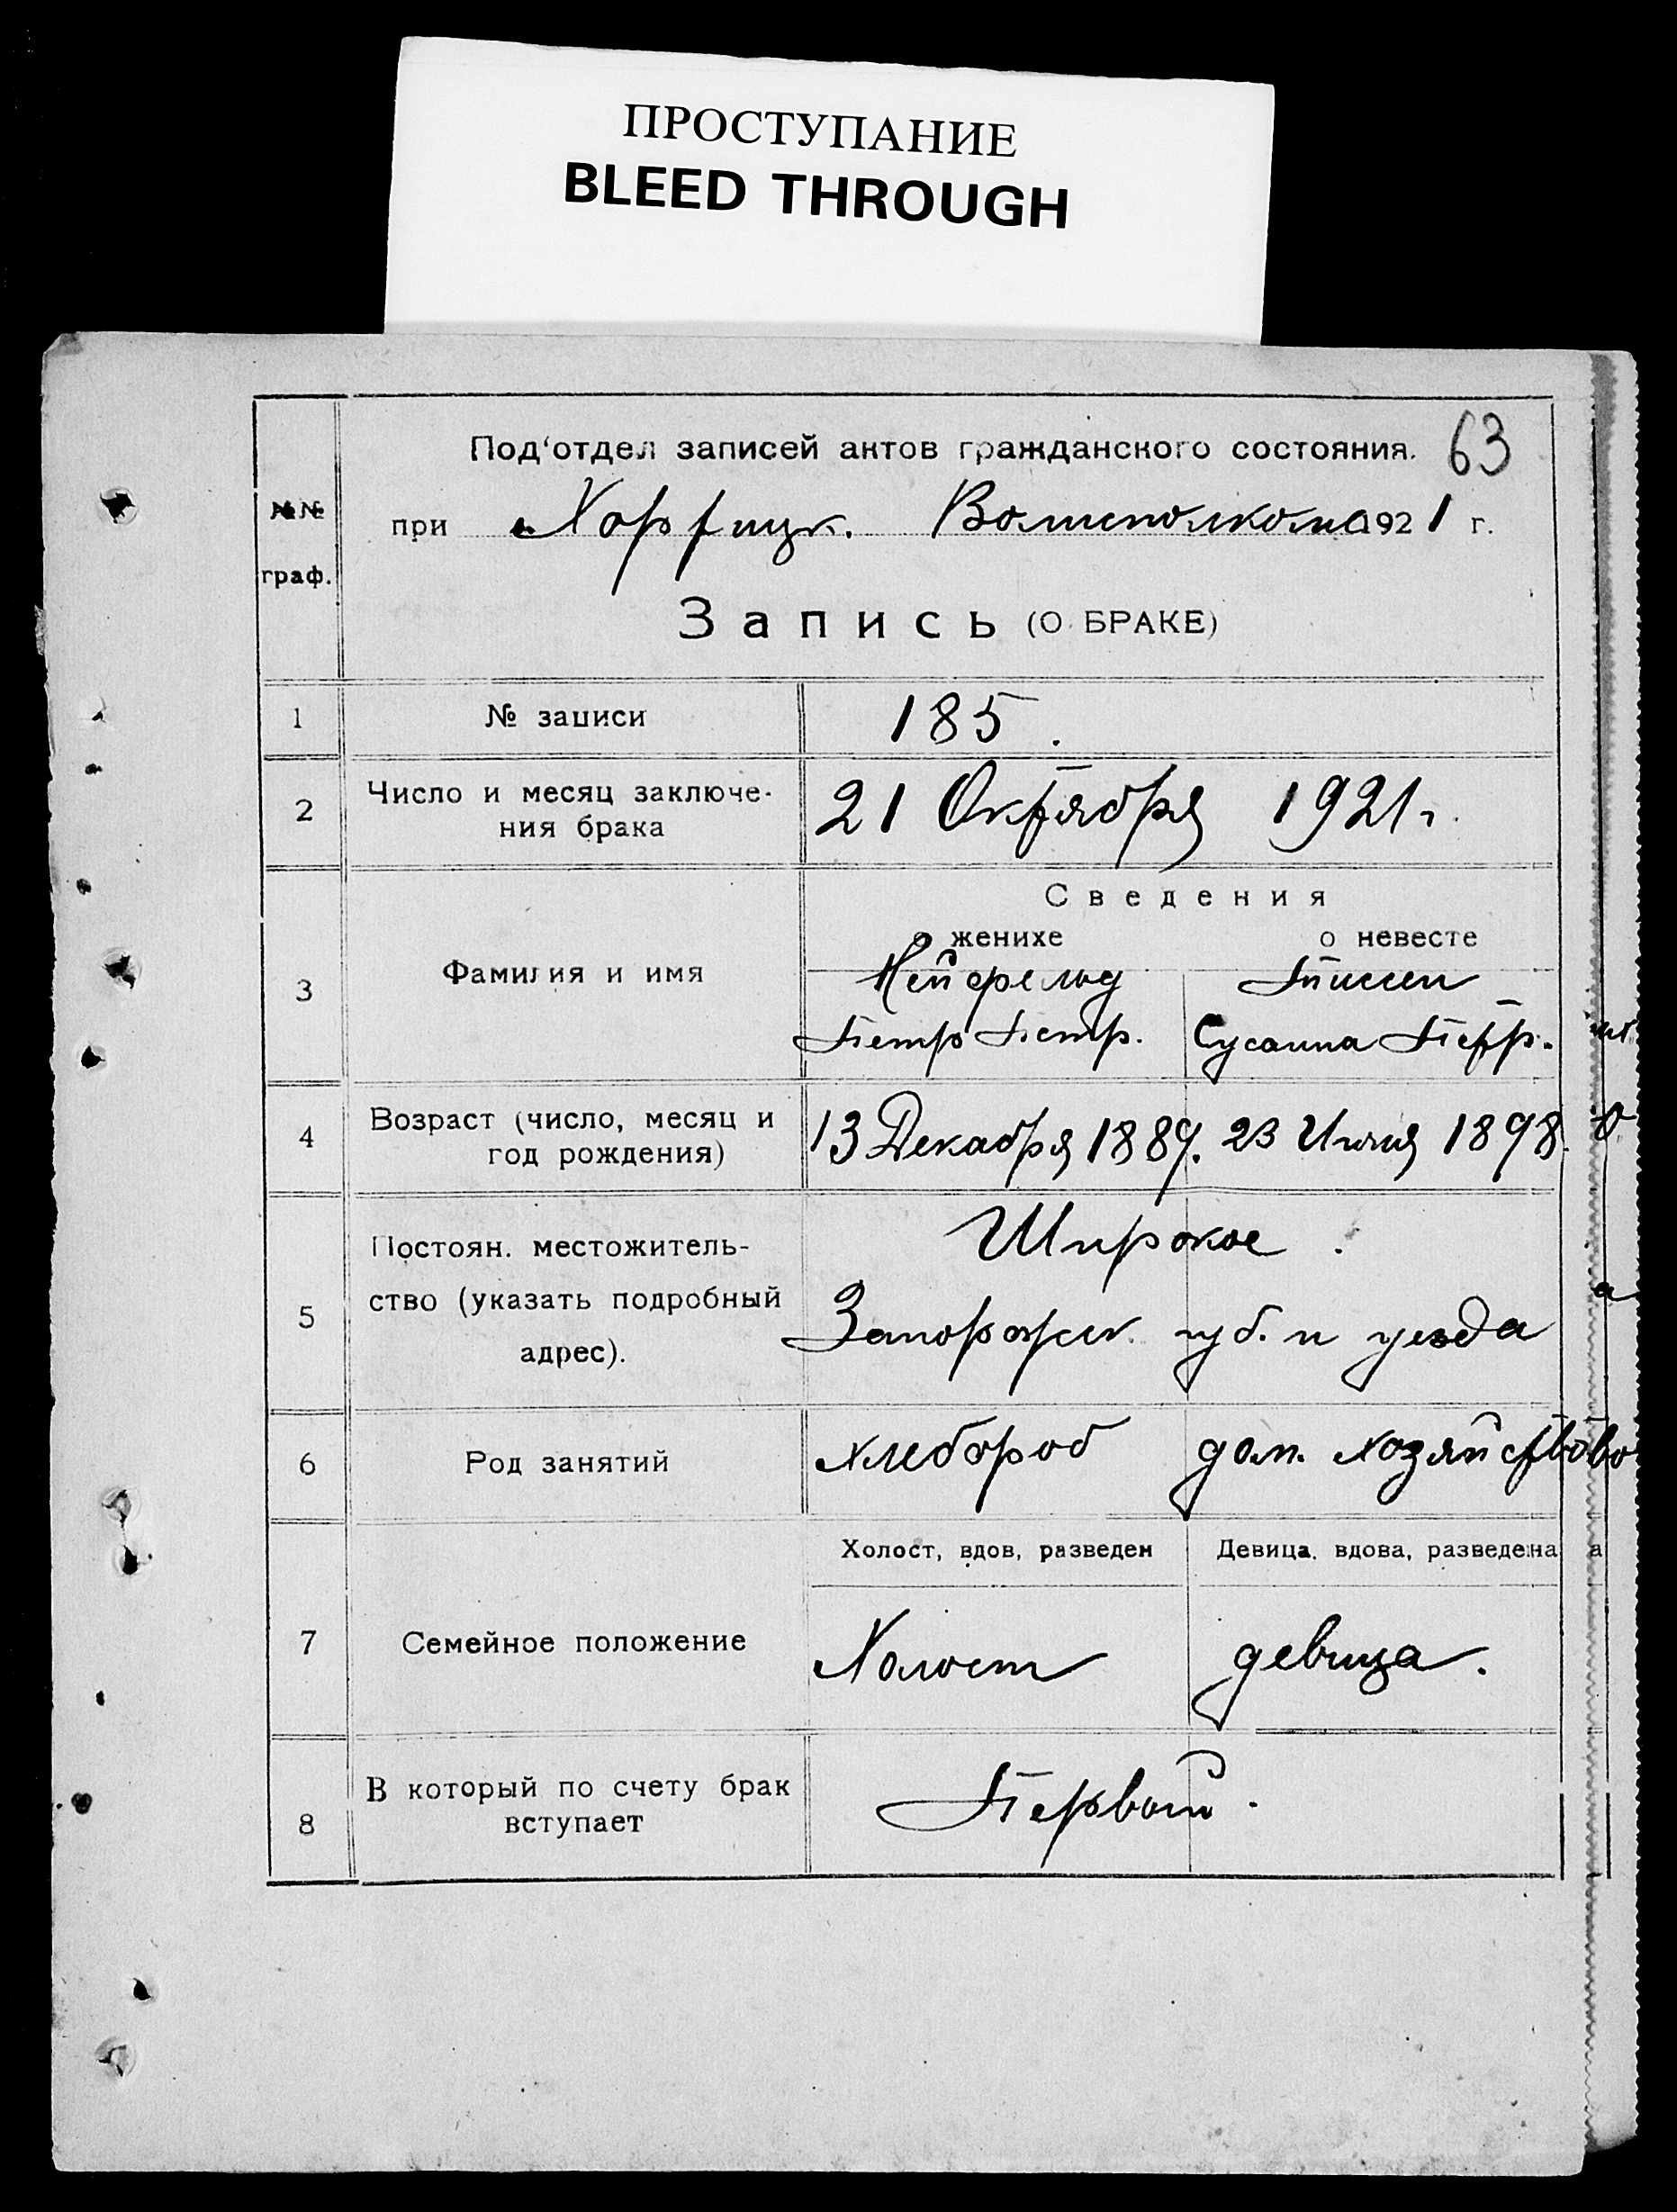 ПРОСТУПАНИЕ
BLEED THROUGH
63
Под‘отдел записей актов гражданского состояния.
№№ граф.
при Хортицк. Волисполкома 1921 г.
Запись (О БРАКЕ)
1 № записи 185.
2 Число и месяц заключе-
ния брака
21 Октября 1921 г.
Сведения
о женихе о невесте
3 Фамилия и имя
Нейфельд Тиссен
Петр Петр. Сусанна Петр.
4 Возраст (число, месяц и
год рождения)
13 Декабря 1889. 23 Июля 1898
5 Постоян. местожитель-
ство (указать подробный
адрес).
Широкое.
Запорожск. губ. и уезда
6 Род занятий хлебороб дом. хозяйство
Холост, вдов, разведен Девица. вдова, разведена
7 Семейное положение Холост девица.
8 В который по счету брак
вступает
Первый.